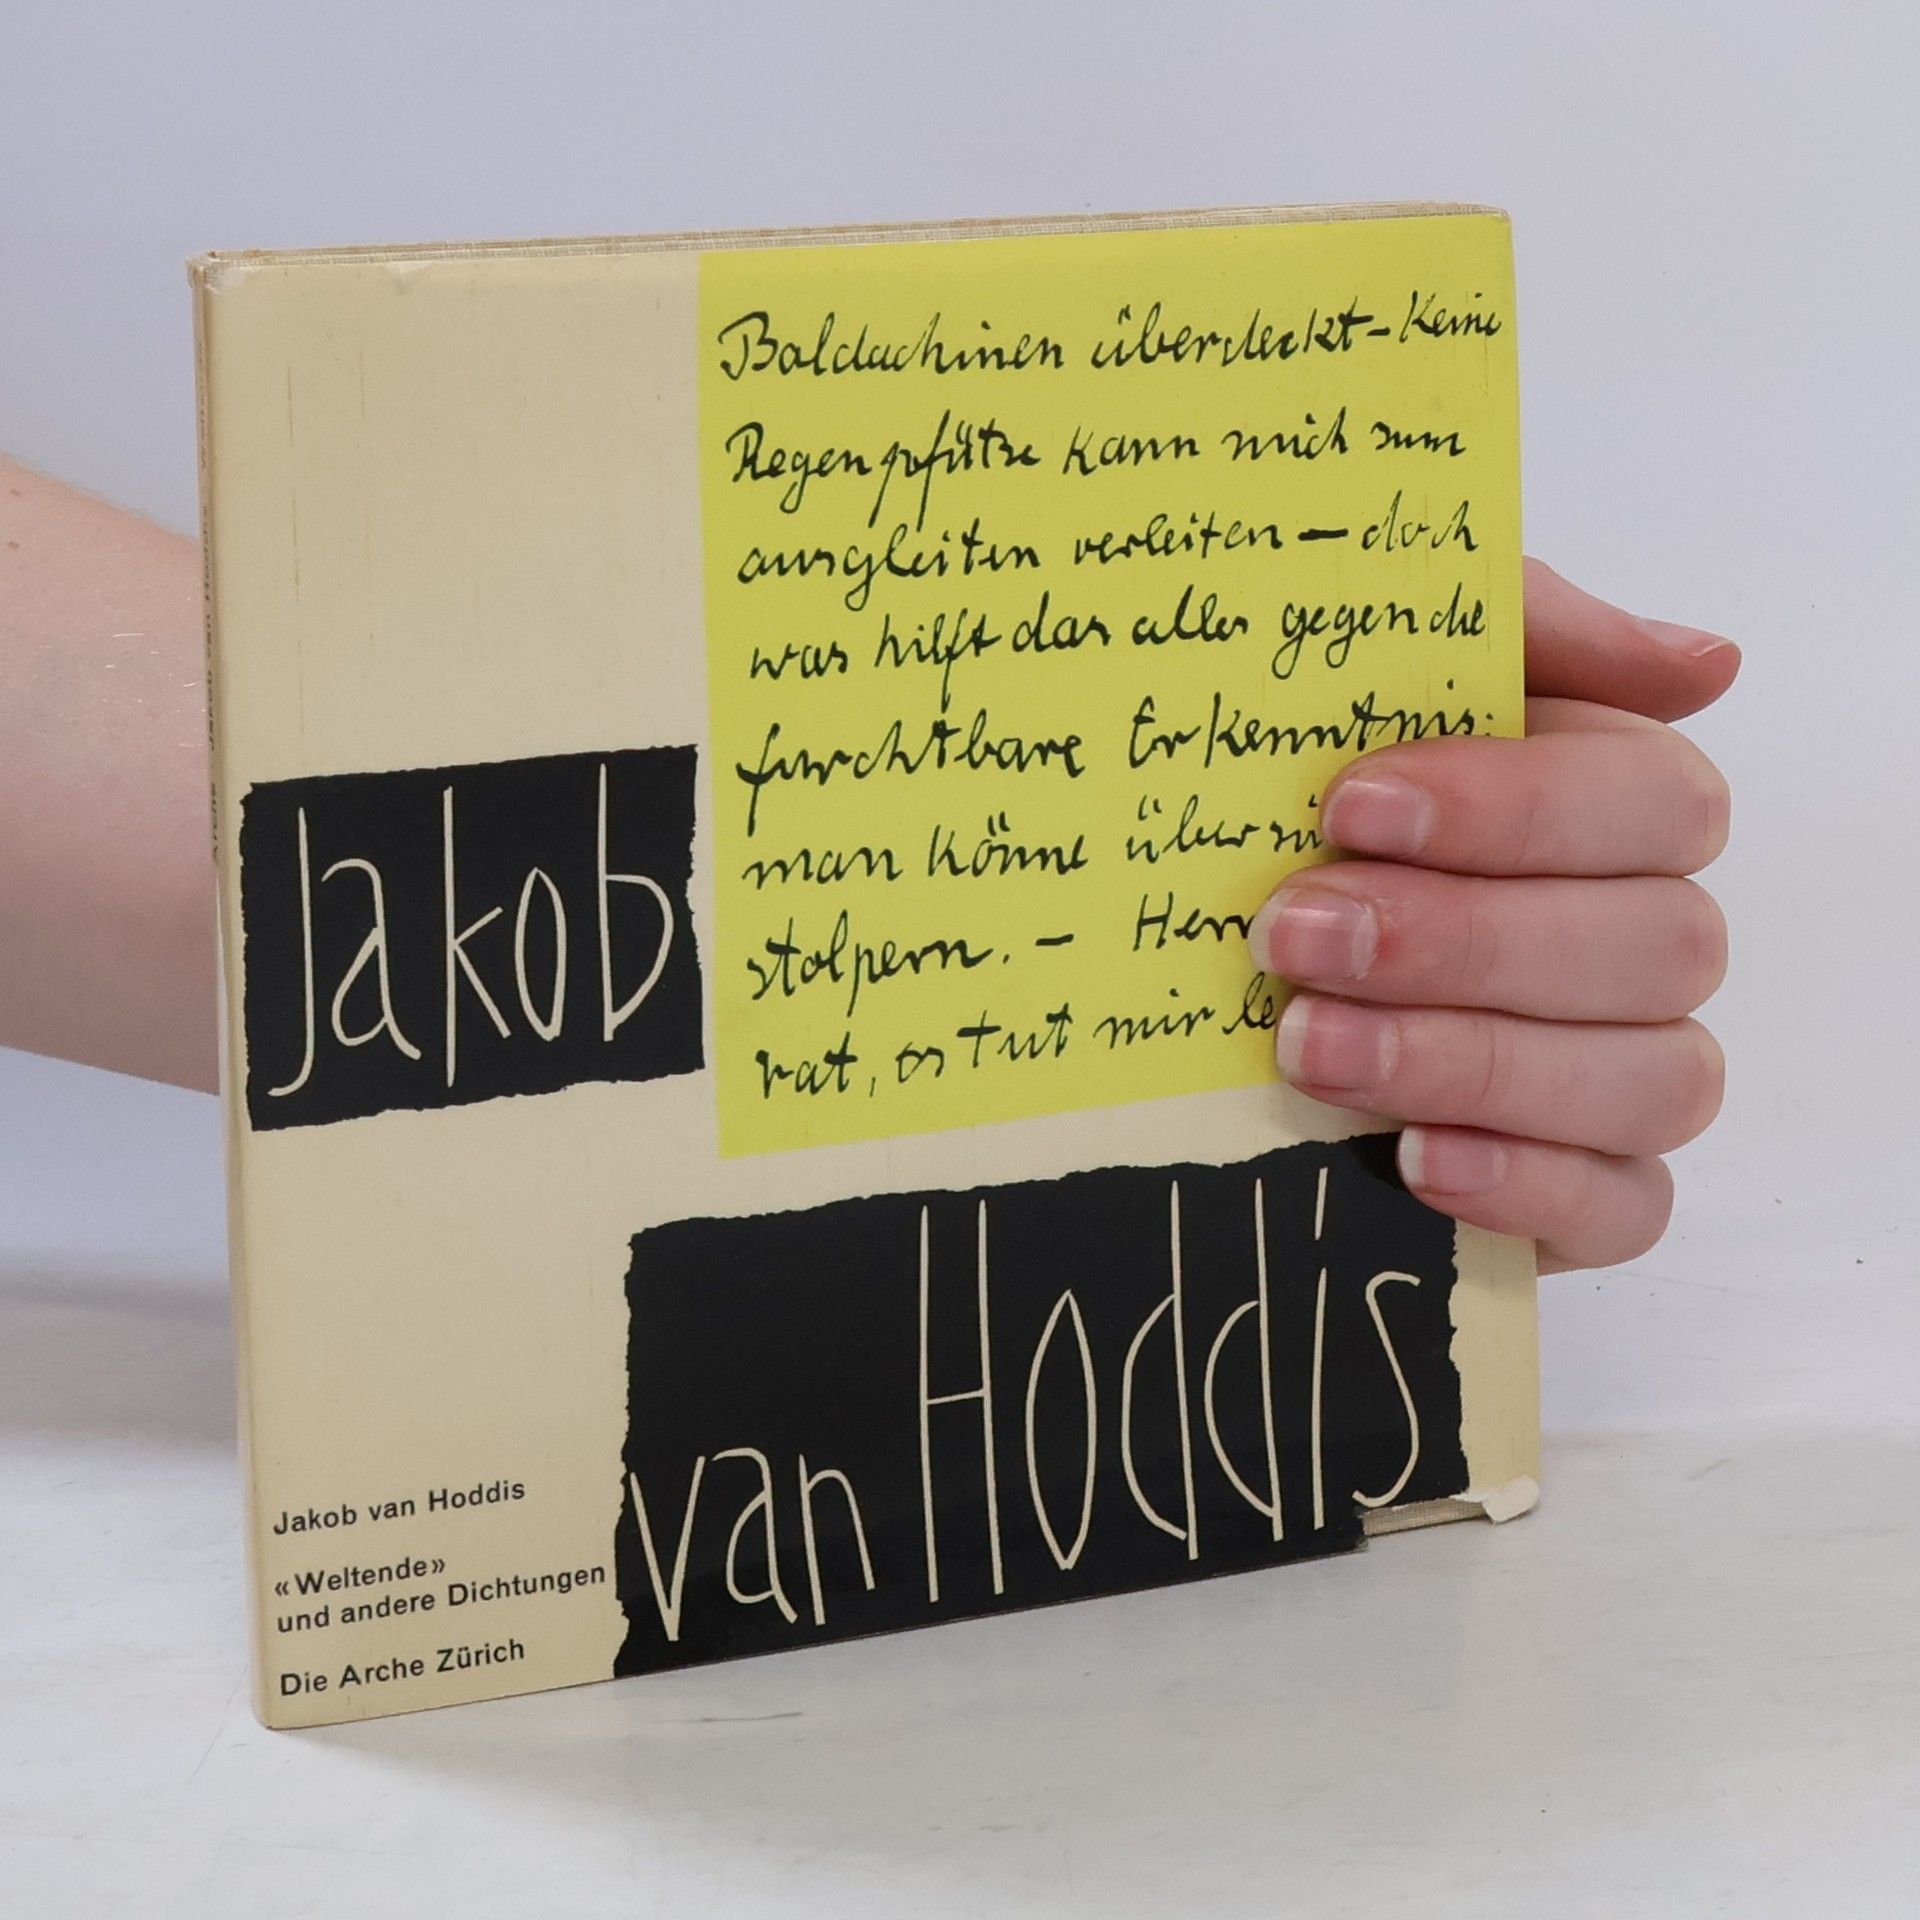 Baldachinen überdeckt – Keine
Regenpfütze kann mich zum
ausgleiten verleiten – doch
was hilft das alles gegen die
furchtbare Erkenntnis:
man könne über
stolpern. –
rat, es tut mir
Jakob
van Hoddis
Jakob van Hoddis
«Weltende»
und andere Dichtungen
Die Arche Zürich